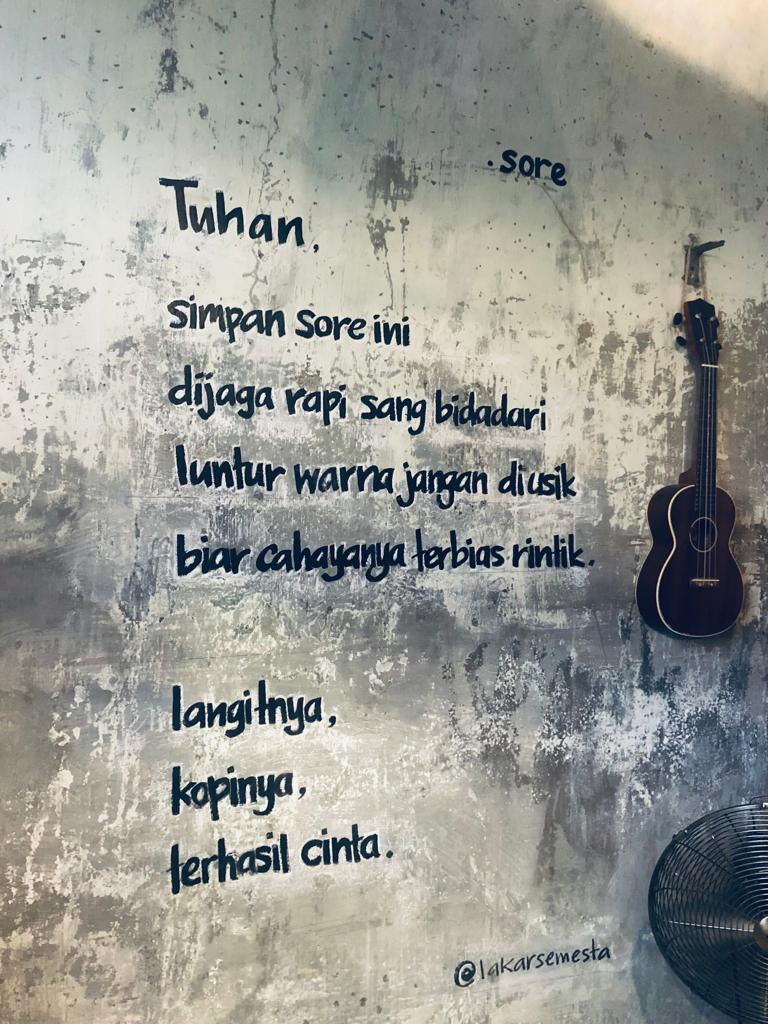 .sore
Tuhan,
simpan sore ini
dijaga rapi sang bidadari
luntur warna jangan diusik
biar cahayanya terbias rintik.
langitnya,
kopinya,
terhasil cinta.
@lakarsemesta